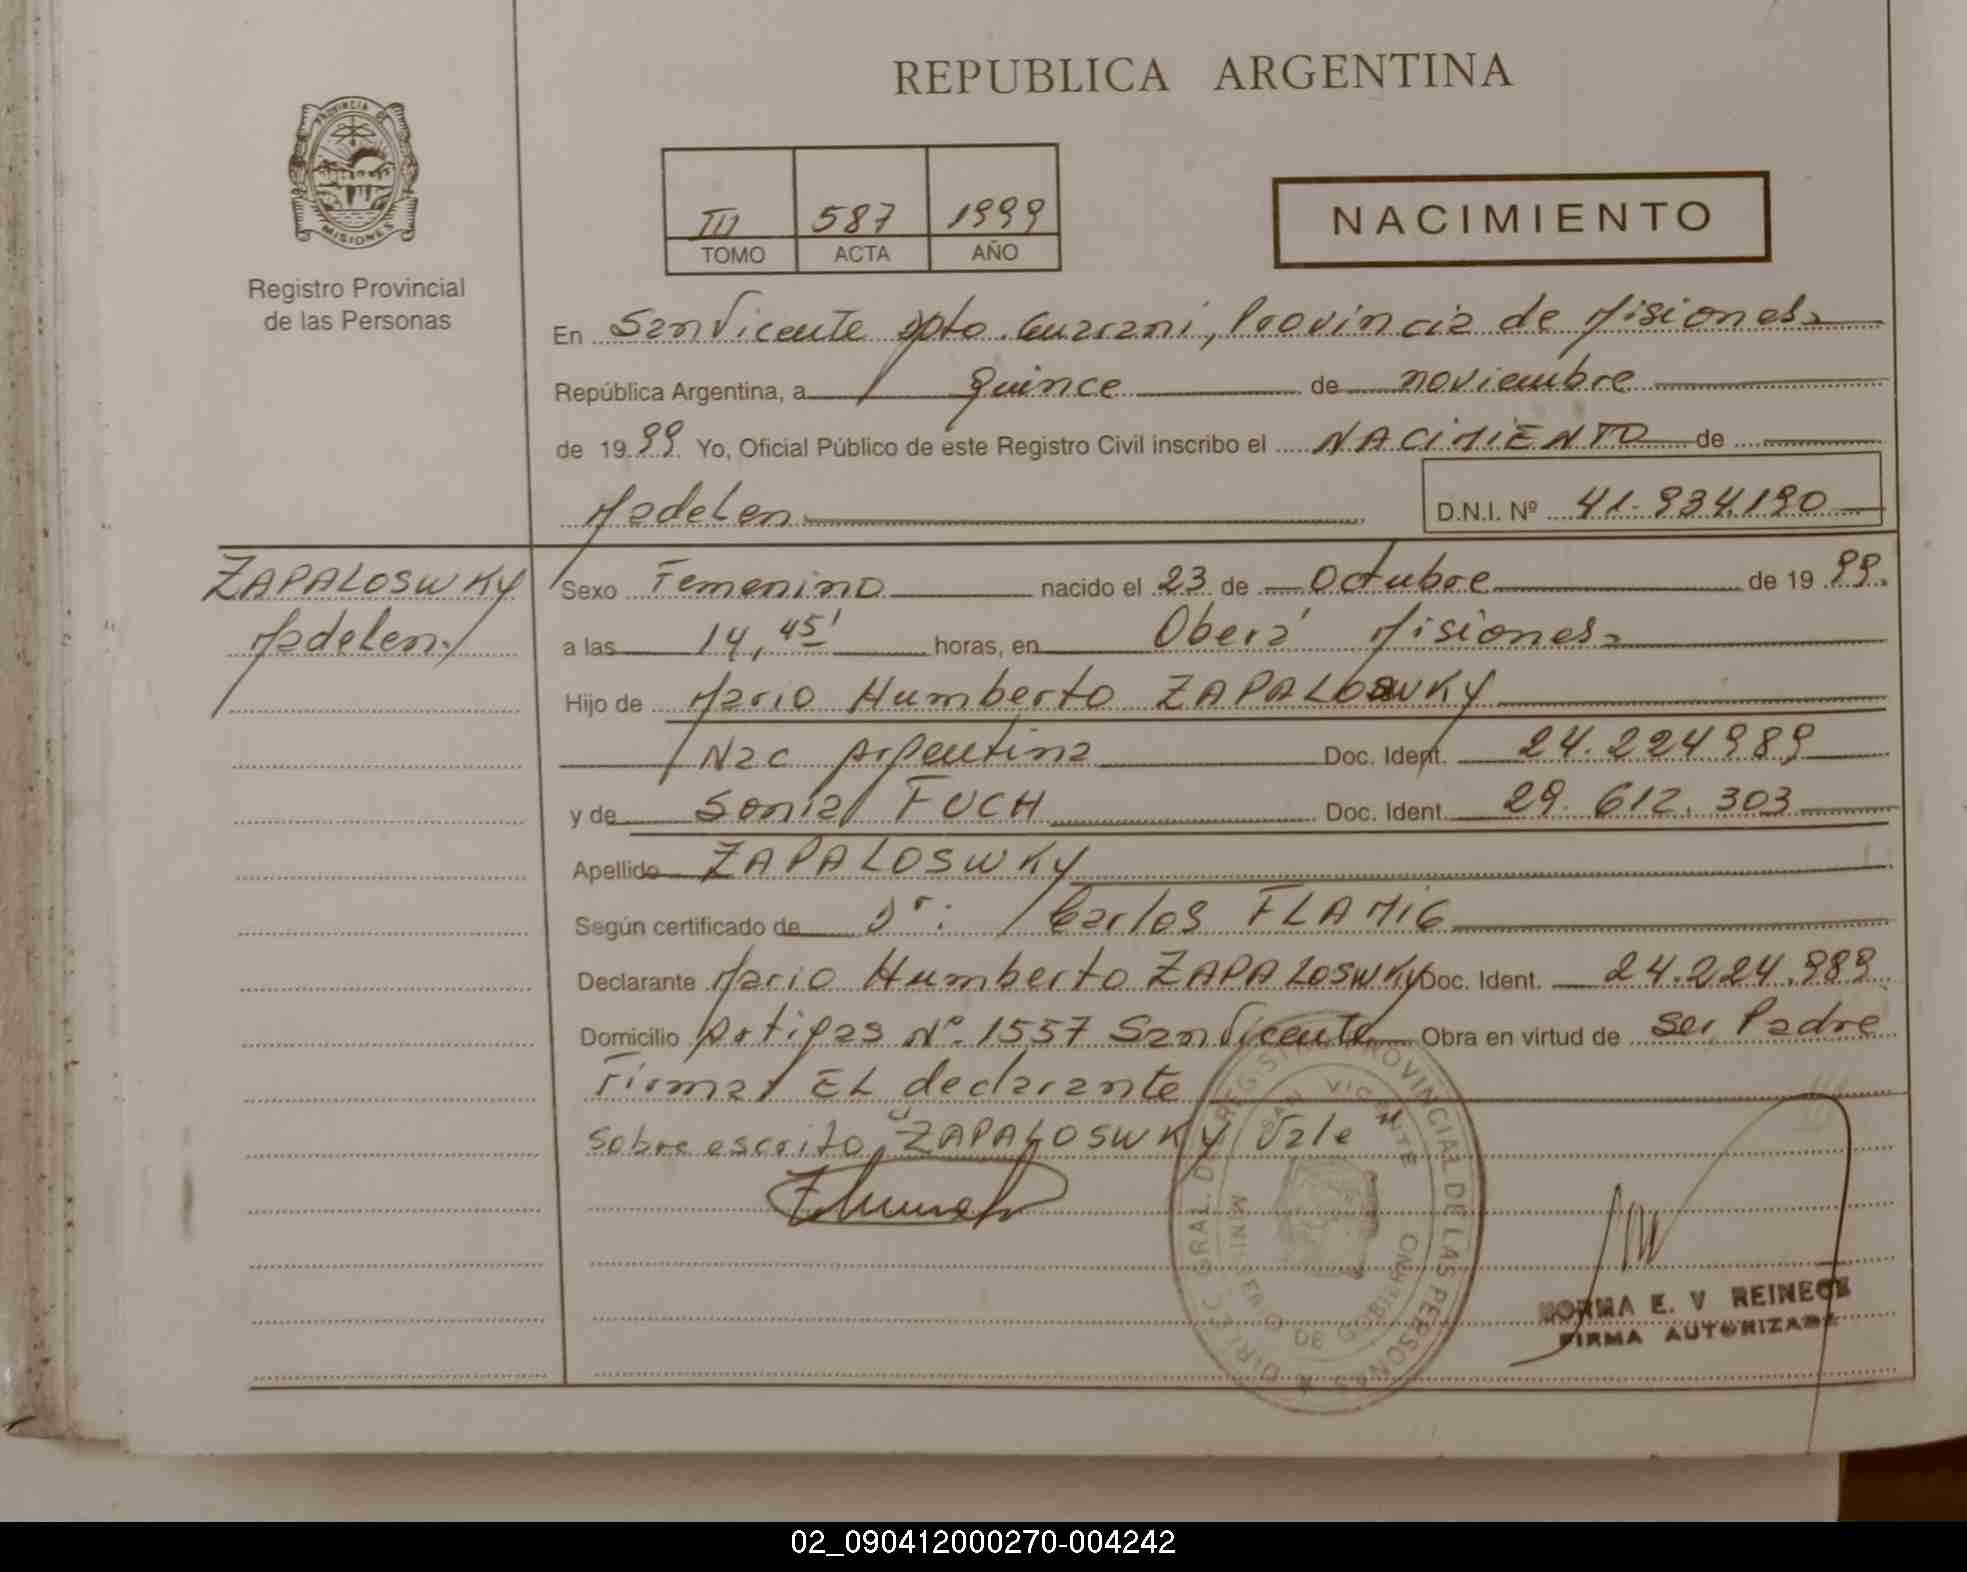 REPUBLICA ARGENTINA
PROVINCIA DE MISIONES
Registro Provincial
de las Personas
III 587 1999
TOMO ACTA AÑO
NACIMIENTO
En San Vicente Dpto. Guarani, Provincia de Misiones
República Argentina, a quince de noviembre
de 1999 Yo, Oficial Público de este Registro Civil inscribo el NACIMIENTO de
Madelen D.N.I. Nº 41.934.190
ZAPALOSWKY
Madelen
Sexo Femenino nacido el 23 de Octubre de 1999.
a las 14,45' horas, en Oberá Misiones
Hijo de Mario Humberto ZAPALOSWKY
Nac Argentina Doc. Ident. 24.224989
y de Sonia FUCH Doc. Ident. 29.612.303
Apellido ZAPALOSWKY
Según certificado de Dr: Carlos FLAMIG
Declarante Mario Humberto ZAPALOSWKY Doc. Ident. 24.224.989
Domicilio Artigas Nº 1557 San Vicente Obra en virtud de ser Padre
Firma EL declarante
Sobre escrito "ZAPALOSWKY Vale"
DIREC. GRAL. DE REGISTRO PROVINCIAL DE LAS PERSONAS
SAN VICENTE
MINISTERIO DE GOBIERNO
NORMA E. V REINECK
FIRMA AUTORIZADA
02_090412000270-004242